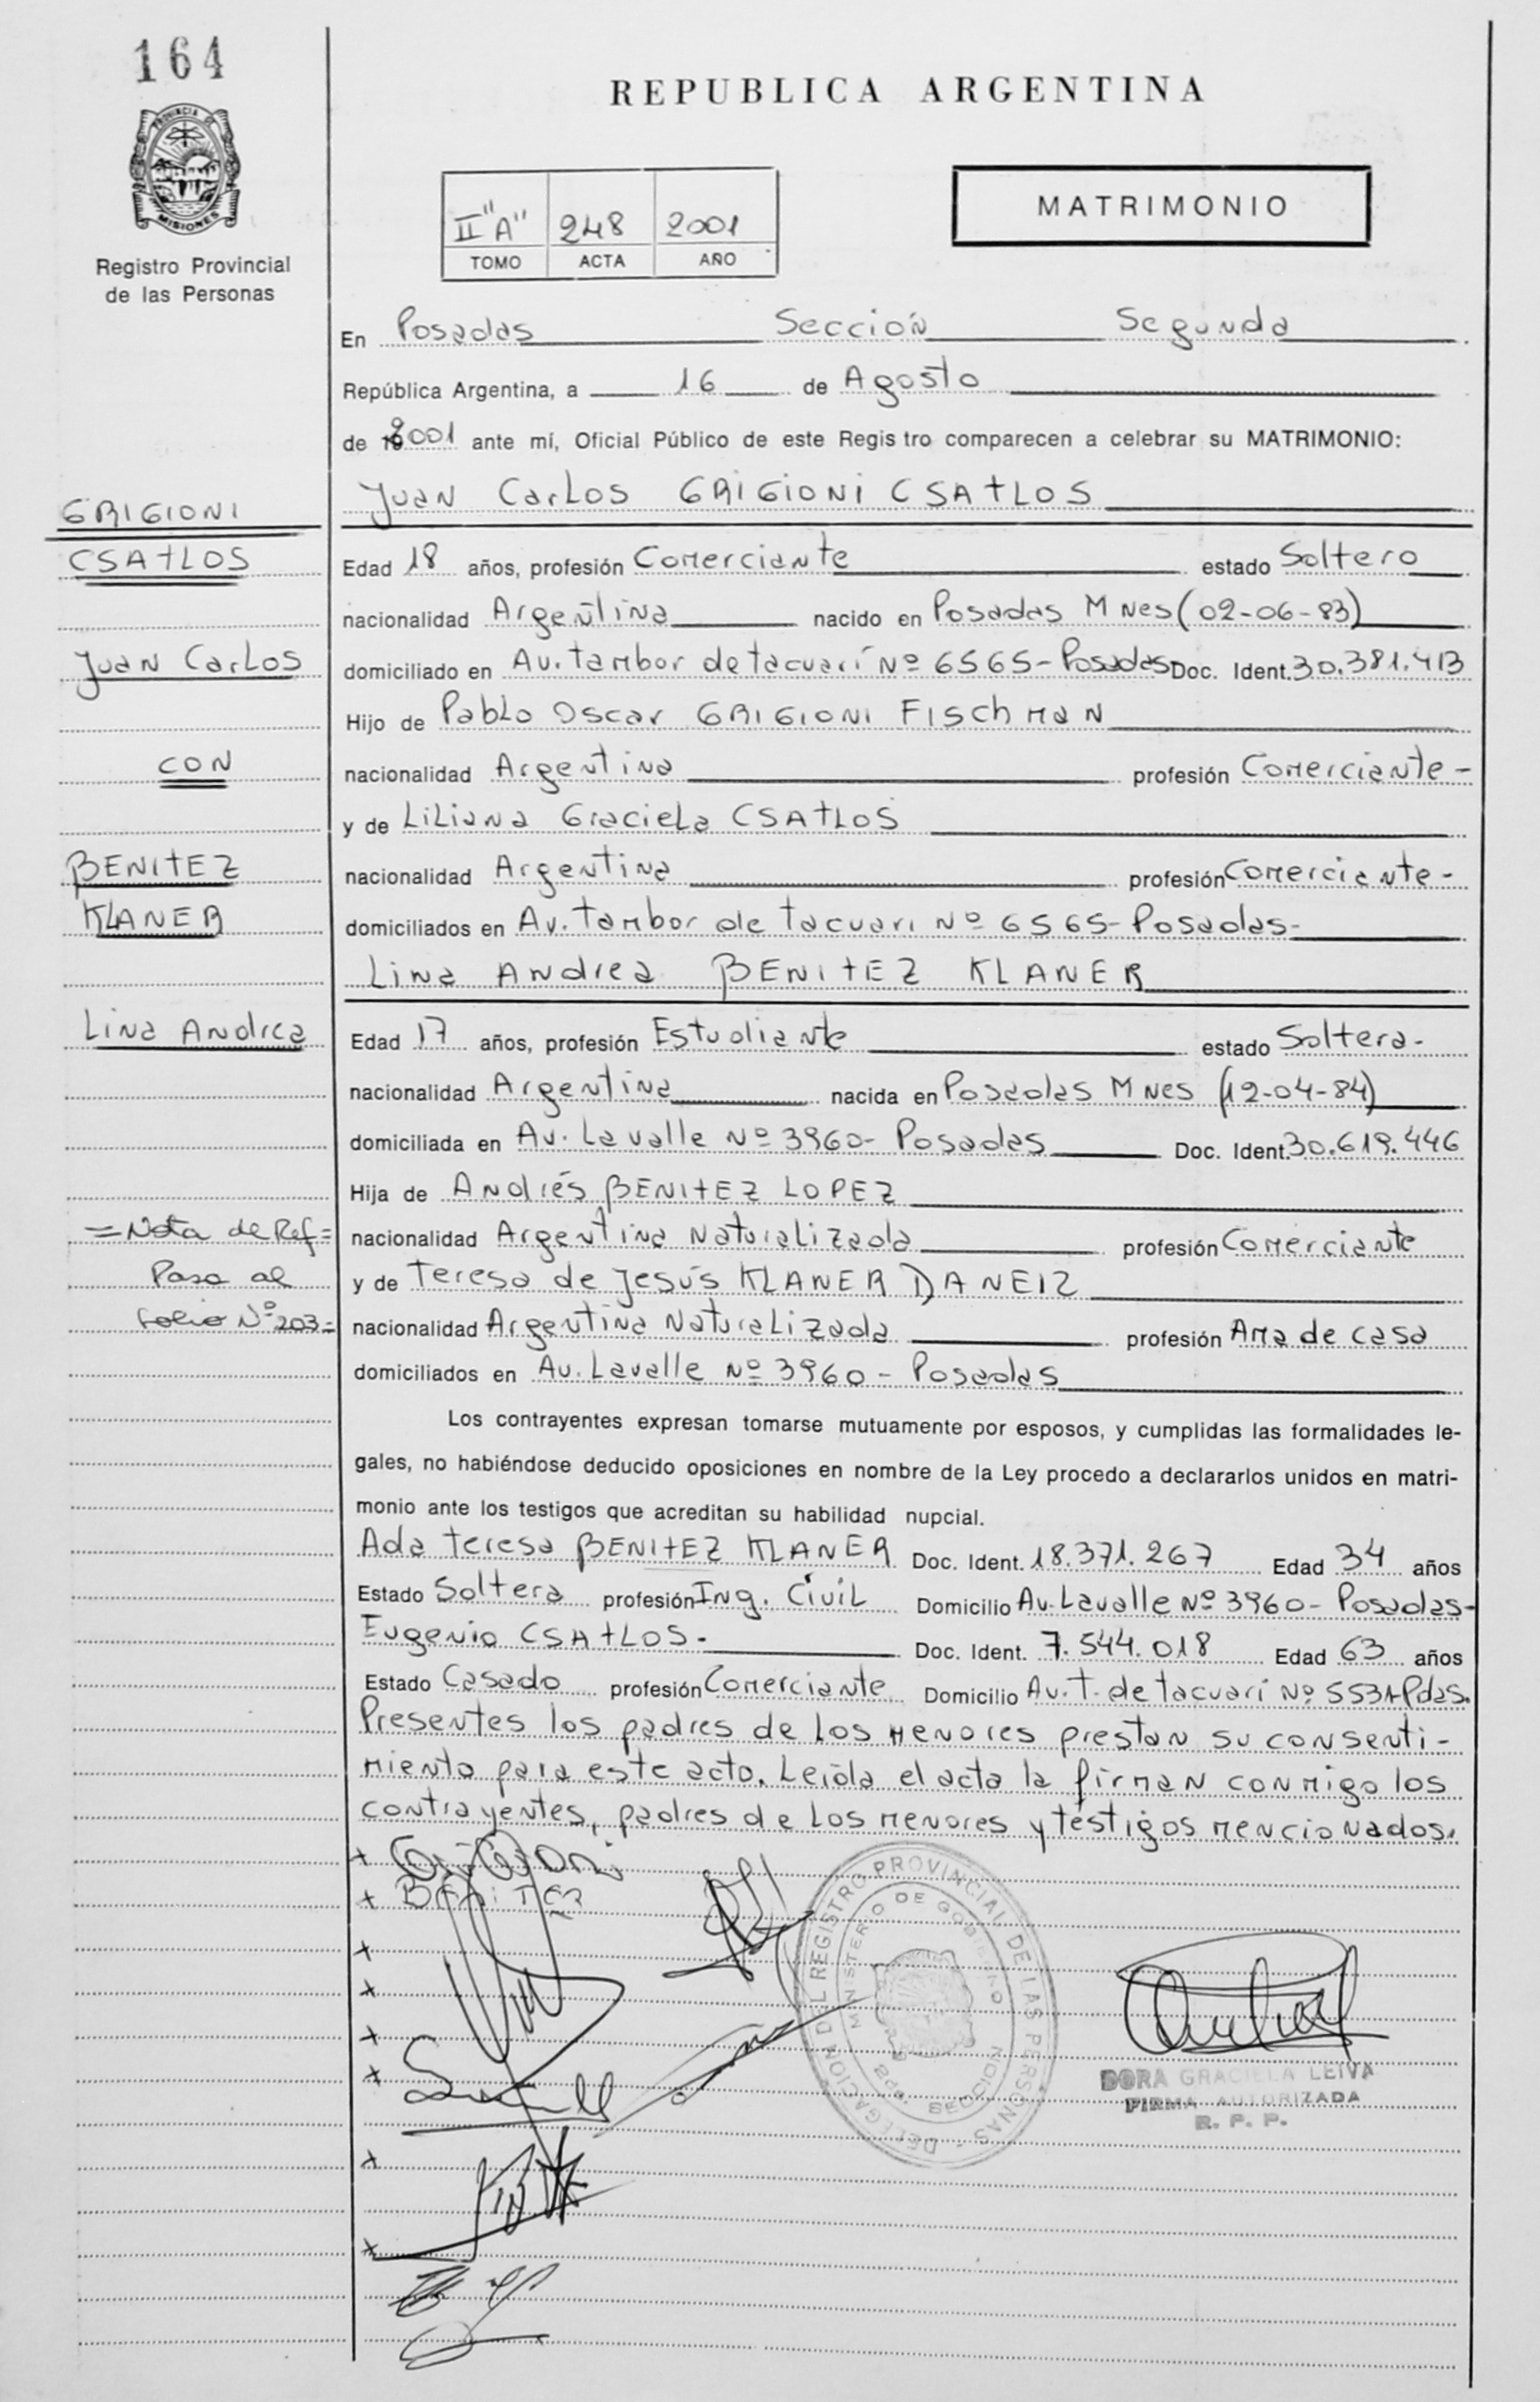 164
REPUBLICA ARGENTINA
PROVINCIA DE
MISIONES
Registro Provincial
de las Personas
MATRIMONIO
II "A" 248 2001
TOMO ACTA AÑO
En Posadas Sección Segunda
República Argentina, a 16 de Agosto
de 2001 ante mí, Oficial Público de este Regis tro comparecen a celebrar su MATRIMONIO:
Juan Carlos GRIGIONI CSATLOS
GRIGIONI
CSATLOS
Juan Carlos
CON
BENITEZ
KLANER
Lina Andrea
= Nota de Ref =
Pasa al
Folio Nº 203 =
Edad 18 años, profesión Comerciante estado Soltero
nacionalidad Argentina nacido en Posadas Mnes (02-06-83)
domiciliado en Av. tambor de tacuarí Nº 6565 - Posadas Doc. Ident. 30.381.413
Hijo de Pablo Oscar GRIGIONI FISCHMAN
nacionalidad Argentina profesión Comerciante -
y de Liliana Graciela CSATLOS
nacionalidad Argentina profesión Comerciante -
domiciliados en Av. tambor de tacuari Nº 6565 - Posadas -
Lina Andrea BENITEZ KLANER
Edad 17 años, profesión Estudiante estado Soltera -
nacionalidad Argentina nacida en Posadas Mnes (12-04-84)
domiciliada en Av. Lavalle Nº 3960 - Posadas Doc. Ident. 30.619.446
Hija de Andrés BENITEZ LOPEZ
nacionalidad Argentina Naturalizada profesión Comerciante
y de Teresa de Jesús KLANER DANEIZ
nacionalidad Argentina Naturalizada profesión Ama de casa
domiciliados en Av. Lavalle Nº 3960 - Posadas
Los contrayentes expresan tomarse mutuamente por esposos, y cumplidas las formalidades le-
gales, no habiéndose deducido oposiciones en nombre de la Ley procedo a declararlos unidos en matri-
monio ante los testigos que acreditan su habilidad nupcial.
Ada teresa BENITEZ KLANER Doc. Ident. 18.371.267 Edad 34 años
Estado Soltera profesión Ing. Civil Domicilio Av. Lavalle Nº 3960 - Posadas -
Eugenio CSATLOS - Doc. Ident. 7.544.018 Edad 63 años
Estado Casado profesión Comerciante Domicilio Av. T. de tacuarí Nº 5531-Pdas.
Presentes los padres de los menores prestan su consenti-
miento para este acto. Leída el acta la firman conmigo los
contrayentes, padres de los menores y testigos mencionados.
Grigioni
BENITEZ
DELEGACION DEL REGISTRO PROVINCIAL DE LAS PERSONAS
MINISTERIO DE GOBIERNO
DORA GRACIELA LEIVA
FIRMA AUTORIZADA
R. P. P.